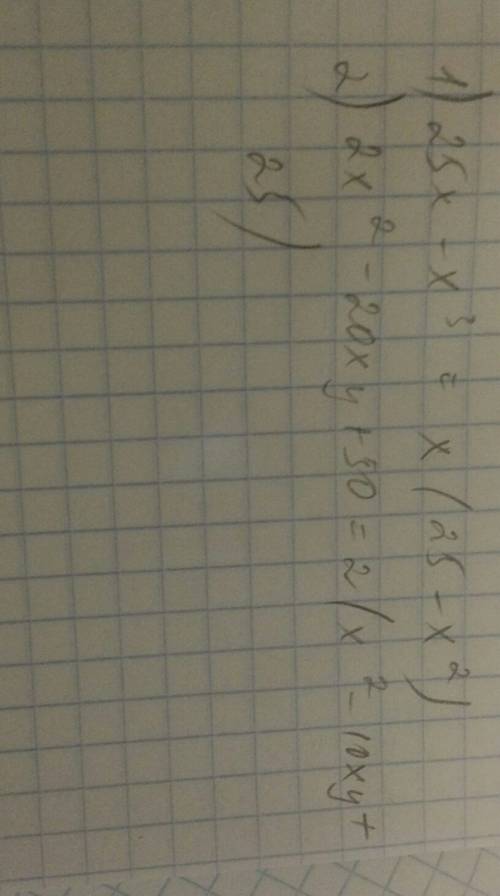 1) 25x - x³ = x (25 - x²)
2) 2x² - 20xy + 50 = 2 (x² - 10xy +
25)